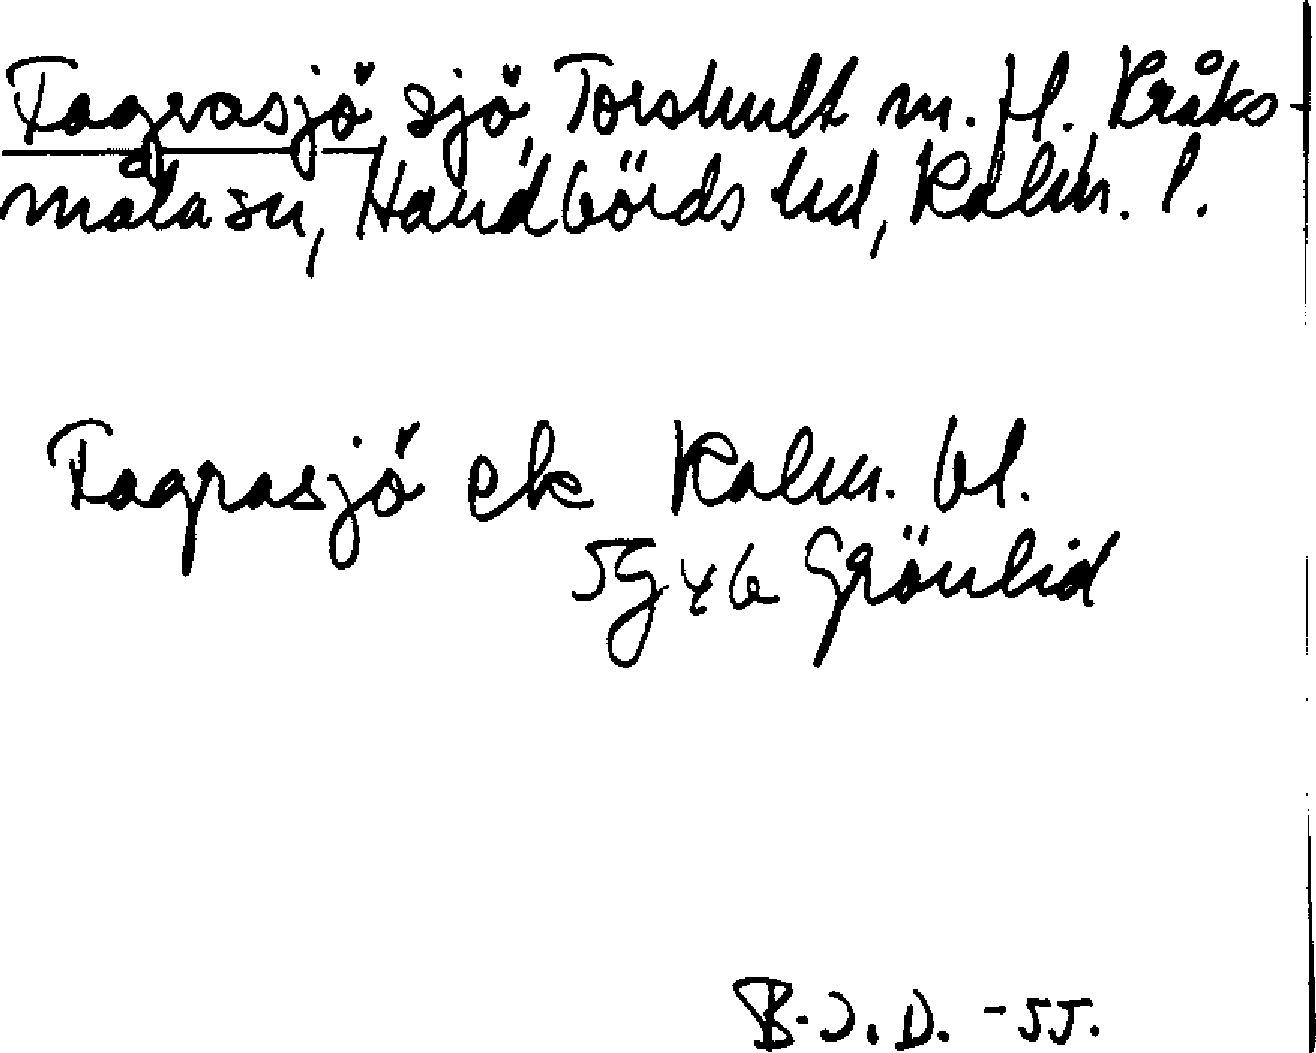 Fagrasjö, sjö, Torshult m. fl., Kråks-
måla sn, Handbörds hd, Kalm. l.
Fagrasjö ek Kalm. bl.
5G 4b Grönlid
B.J.D. -55.